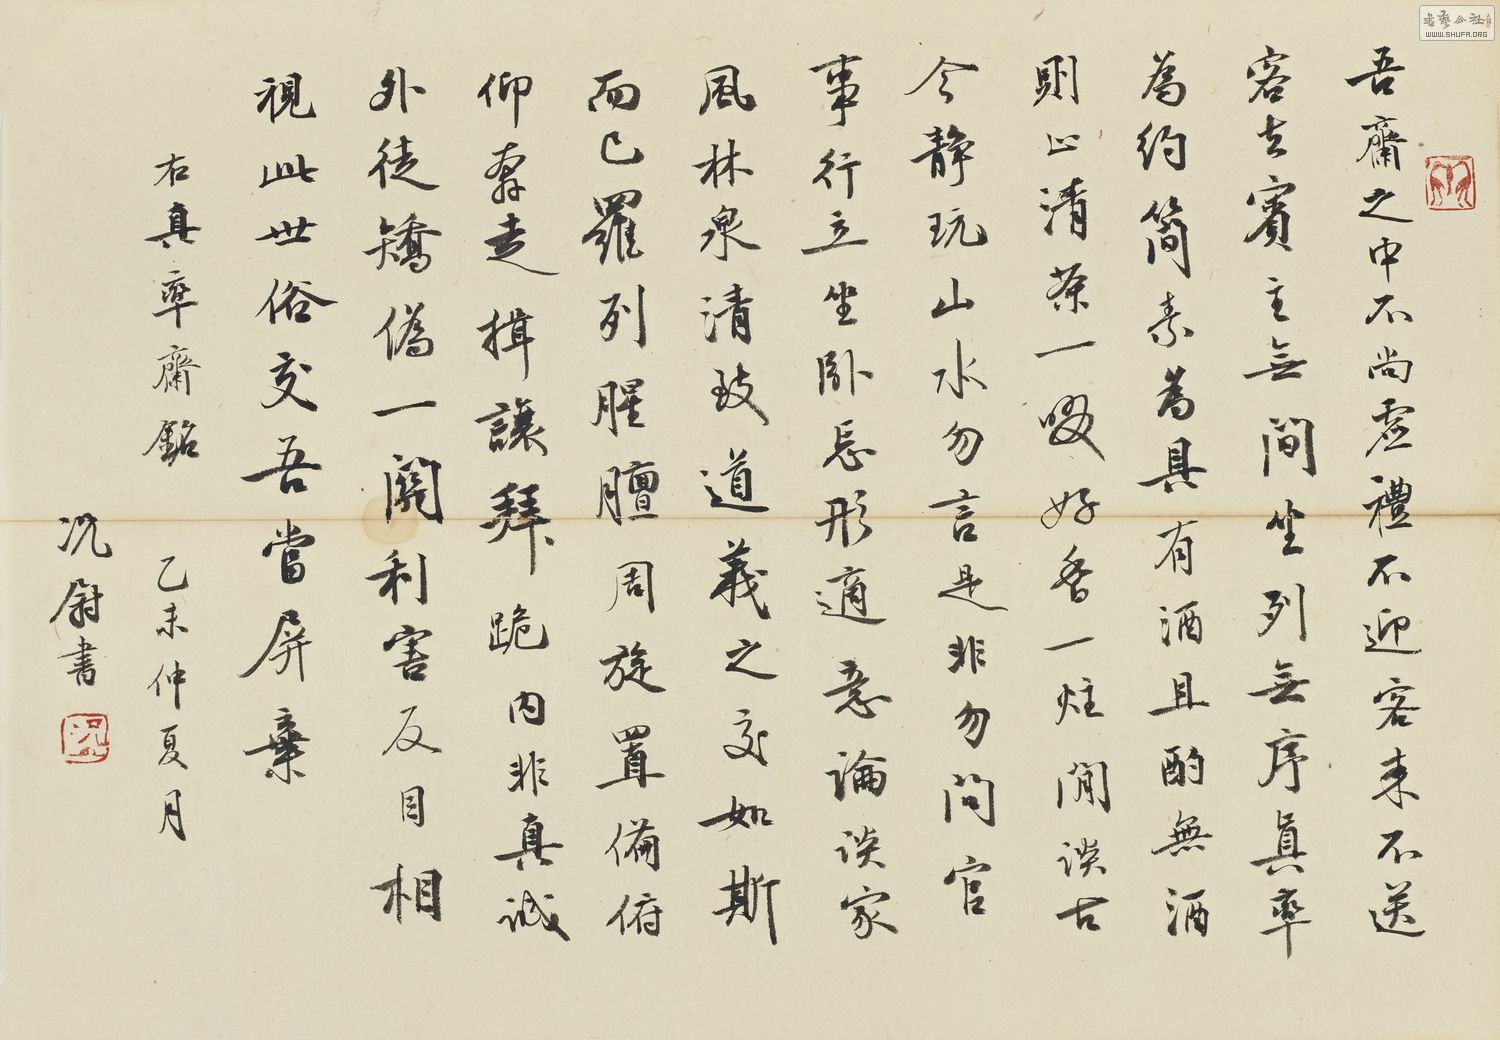 吾齋之中不尚虛禮不迎客来不送
客去賓主無間坐列無序真率
為約簡素為具有酒且酌無酒
則止清茶一啜好香一炷閒談古
今静玩山水勿言是非勿問官
事行立坐卧忘形適意論談家
風林泉清致道義之交如斯
而已羅列腥膻周旋置備俯
仰奔走揖讓拜跪内非真誠
外徒矯偽一關利害反目相
視此世俗交吾當屏棄
右真率齋銘
乙未仲夏月
况尉書
况
書藝公社
WWW.SHUFA.ORG